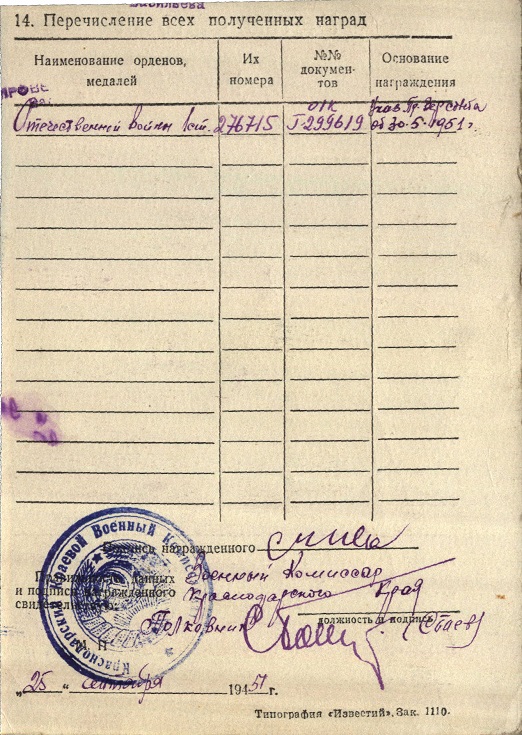 Васильева
14. Перечисление всех полученных наград
Наименование орденов, медалей
Их номера
№№ документов
Основание награждения
ПРОВЕ
Отечественной Войны I ст. 276715 I-299619
от 30.5.1951 г.
Подпись награжденного
Правильность данных и подписи награжденного свидетельствую:
Военный Комиссар
Краснодарского Края
Полковник
должность и подпись
Краснодарский Краевой Военный
"25" сентября 1951 г.
Типография «Известий», Зак. 1110.